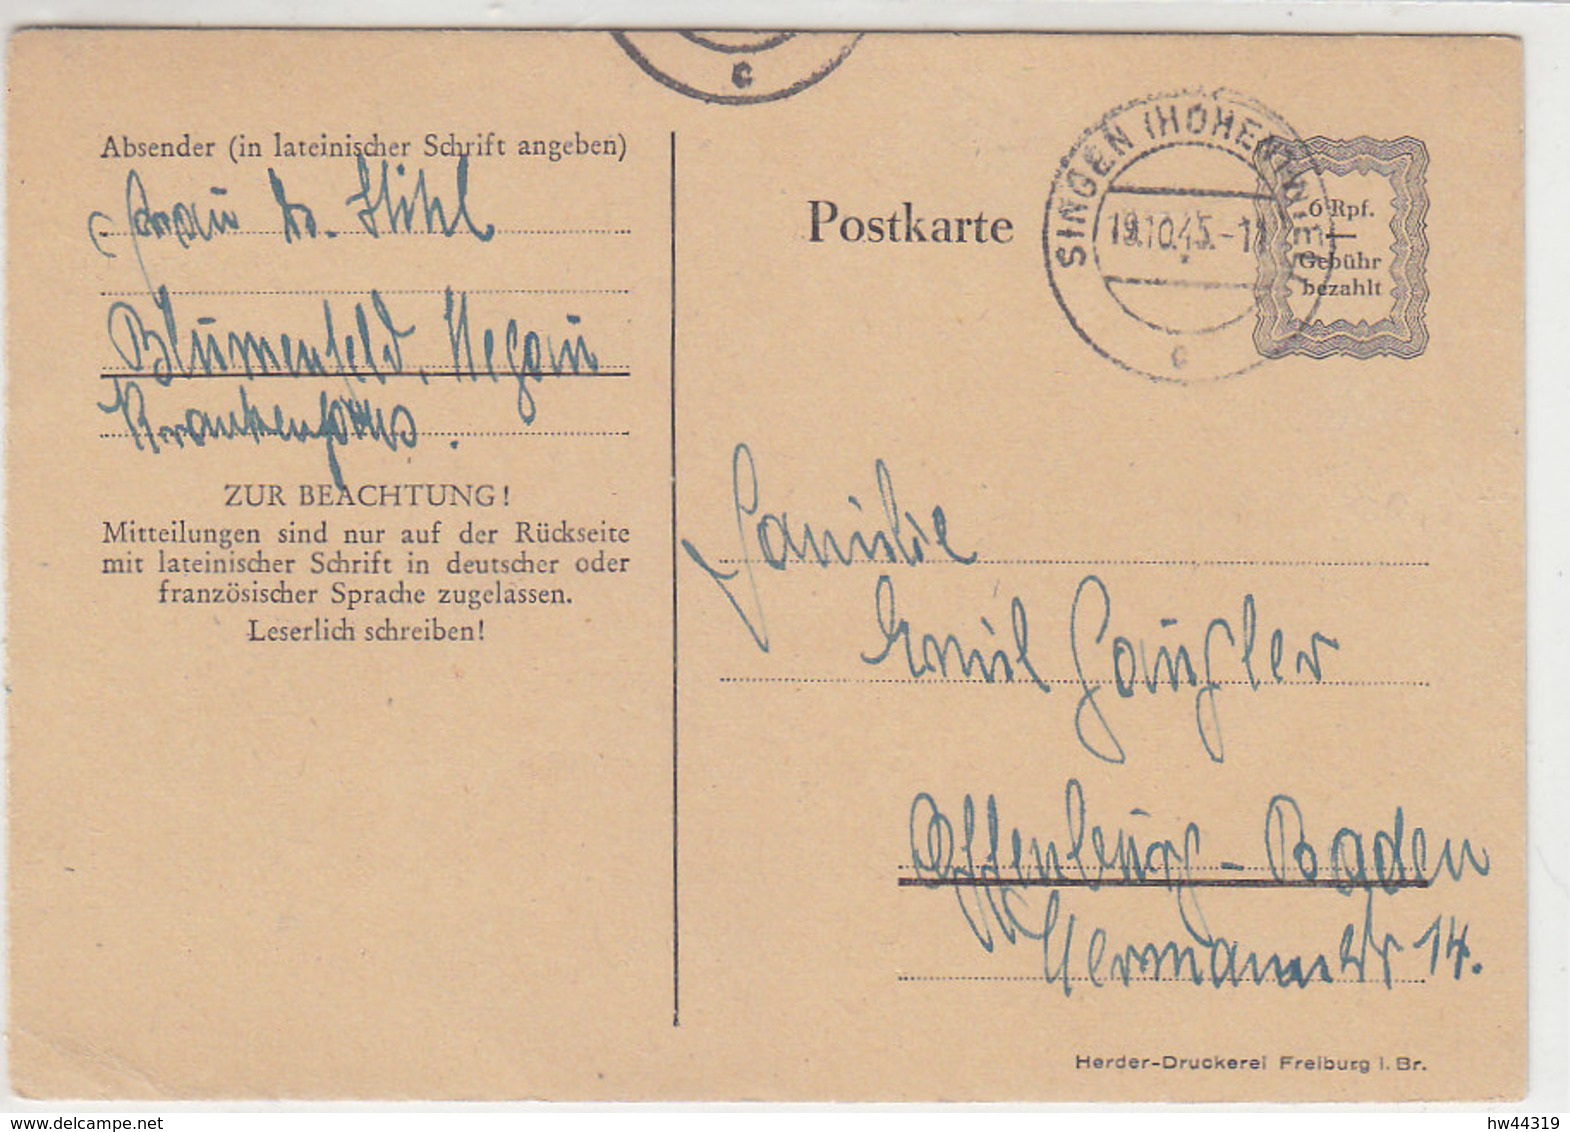 c
Absender (in lateinischer Schrift angeben)
Frau Dr. Stihl
Blumenfeld, Hegau
Krankenhaus.
ZUR BEACHTUNG!
Mitteilungen sind nur auf der Rückseite
mit lateinischer Schrift in deutscher oder
französischer Sprache zugelassen.
Leserlich schreiben!
Postkarte
SINGEN (HOHENTWIEL)
19.10.45.-11
c
6 Rpf.
Gebühr
bezahlt
Familie
Emil
Offenburg-Baden
Hermannstr 14.
Herder-Druckerei Freiburg i. Br.
hw44319